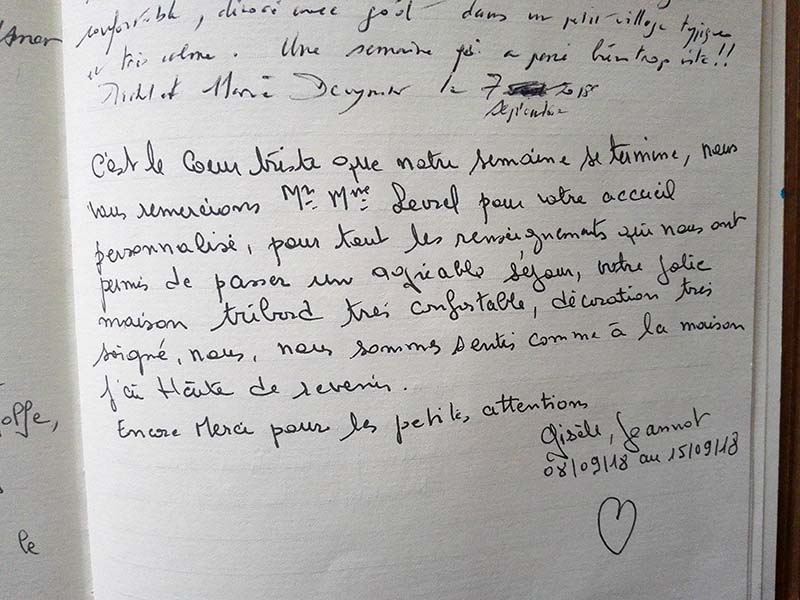 confortable, décoré avec goût dans un petit village typique
et très calme. Une semaine qui a passé bien trop vite!!
et Marie le 7 2018
septembre
C'est le Coeur triste que notre semaine se termine, nous
vous remercions Mr Mme pour votre accueil
personnalisé, pour tout les renseignements qui nous ont
permis de passer un agréable séjour, votre jolie
maison tribord très confortable, décoration très
soigné, nous, nous sommes sentis comme à la maison
j'ai Hâte de revenir.
Encore Merci pour les petites attentions
Gisèle, Jeannot
08/09/18 au 15/09/18
le